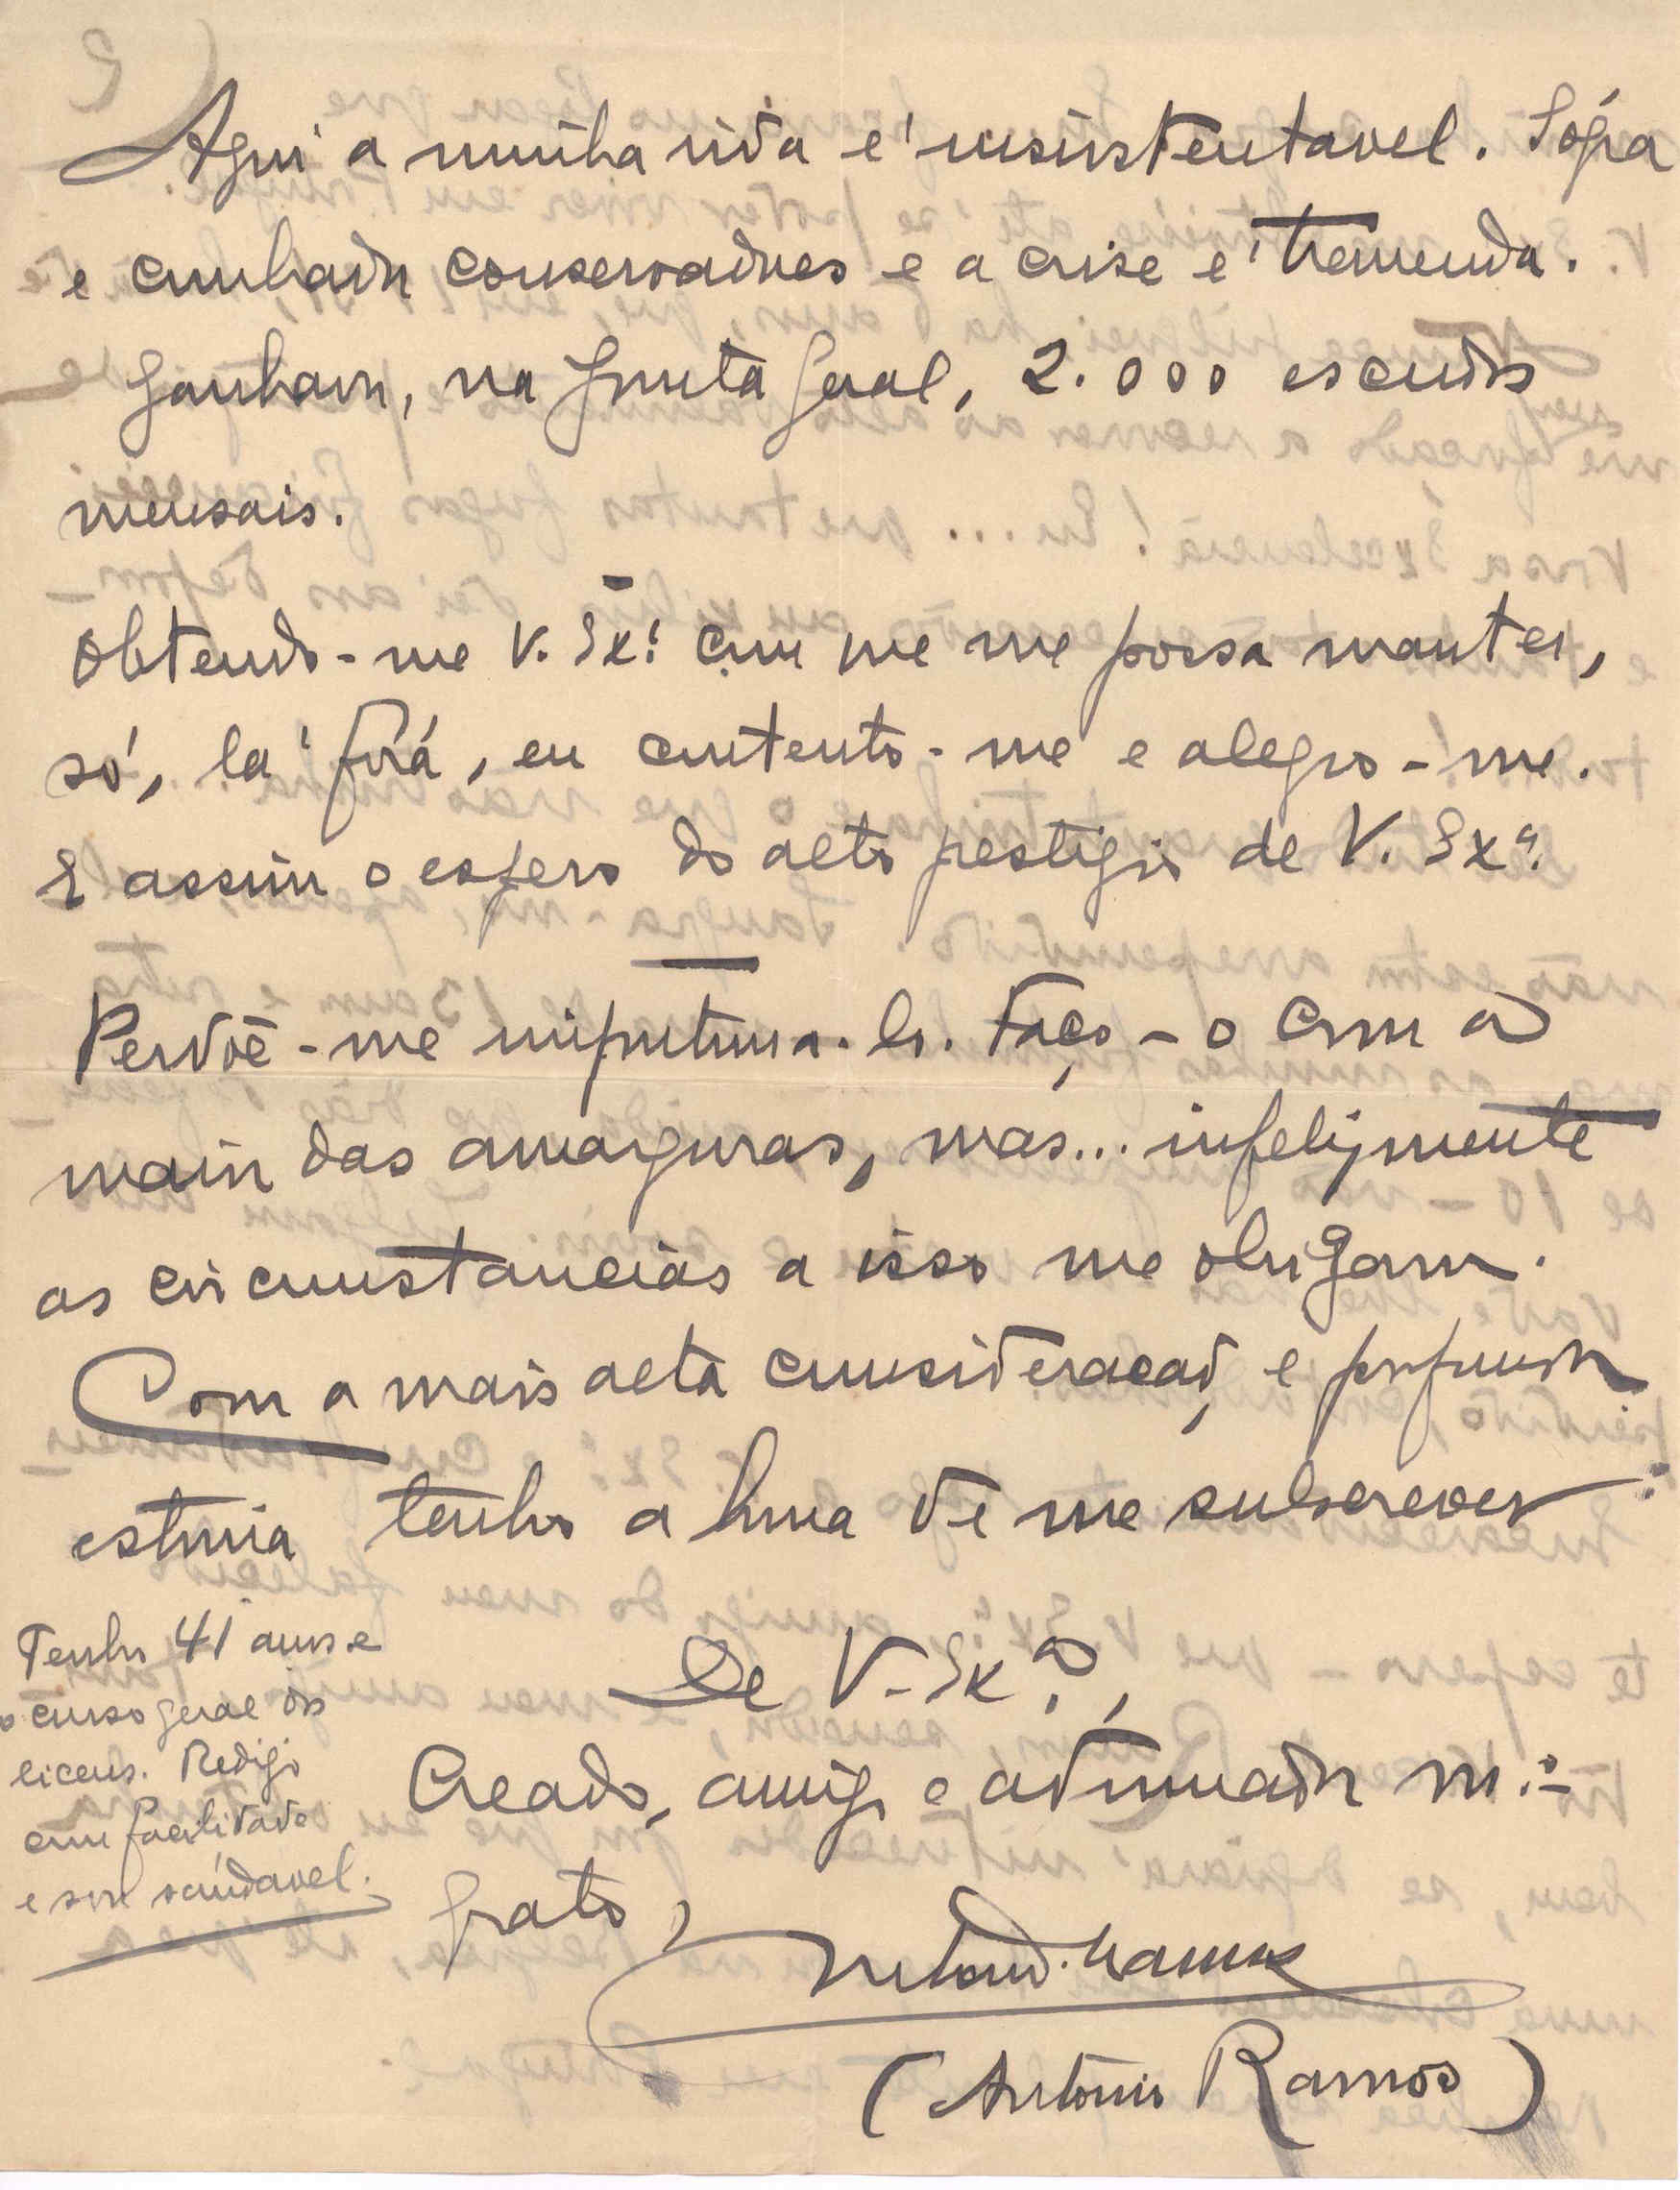 Aqui a minha vida é insustentavel. Sógra
e cunhado conservadores e a crise é tremenda.
Ganham, na Junta Geral, 2.000 escudos
mensais.
Obtendo-me V. Exª com que me possa manter,
só, lá fóra, eu contento-me e alegro-me.
E assim o espero do alto prestigio de V. Exª.
Perdoe-me importuna-lo. Faço-o com a
maior das amarguras, mas... infelizmente
as circumstancias a isso me obrigam.
Com a mais alta consideração e profunda
estima tenho a honra de me subscrever:
De V. Exª,
Creado, amigo e admirador m.to
grato,
António Ramos
(António Ramos)
Tenho 41 anos e
o curso geral dos
liceus. Redijo
com facilidade
e sou saúdavel.